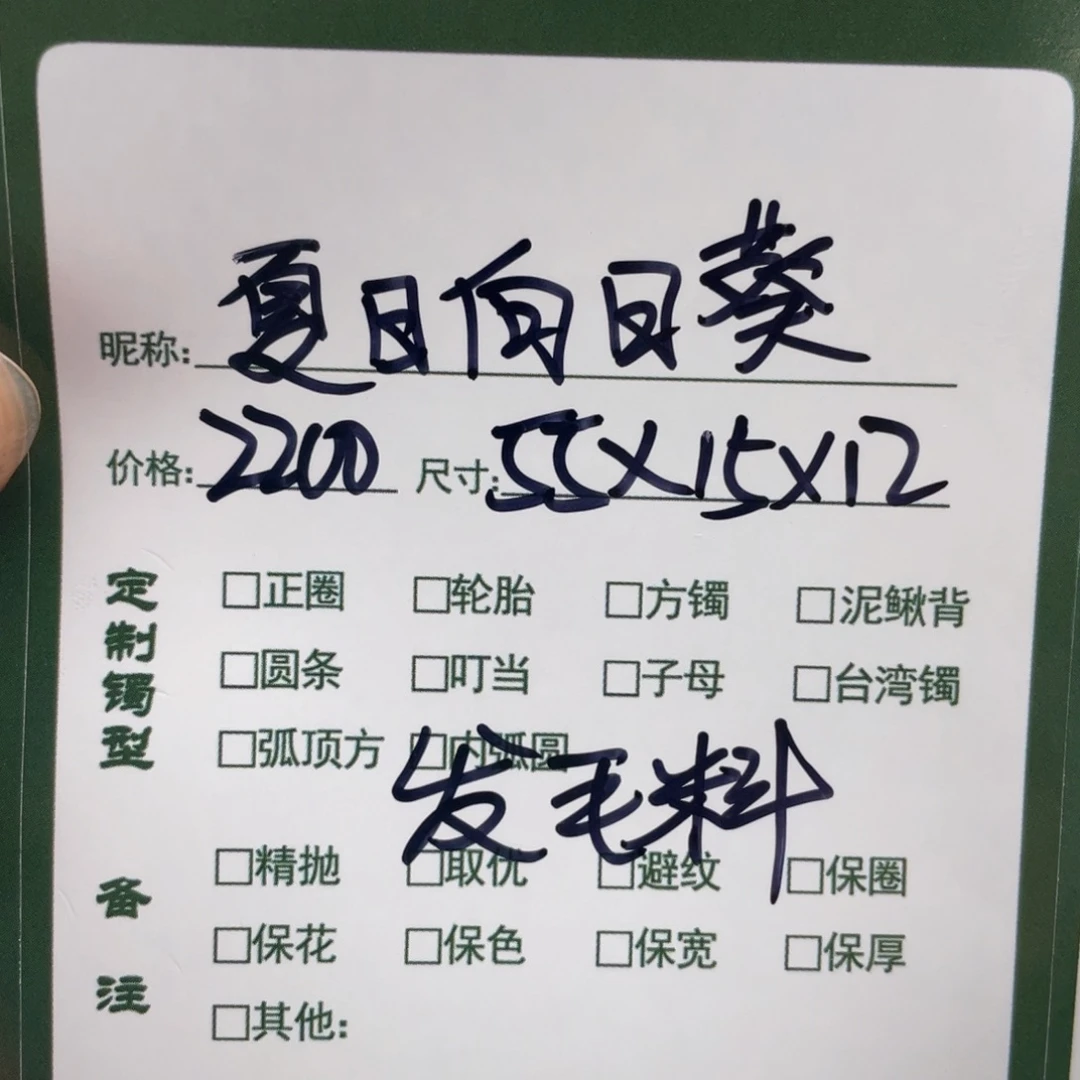 昵称:夏日向日葵
价格:2200 尺寸:55X15X12
定制镯型
□正圈 □轮胎 □方镯 □泥鳅背
□圆条 □叮当 □子母 □台湾镯
□弧顶方 □内弧圆
发毛料
备注
□精抛 □取优 □避纹 □保圈
□保花 □保色 □保宽 □保厚
□其他: